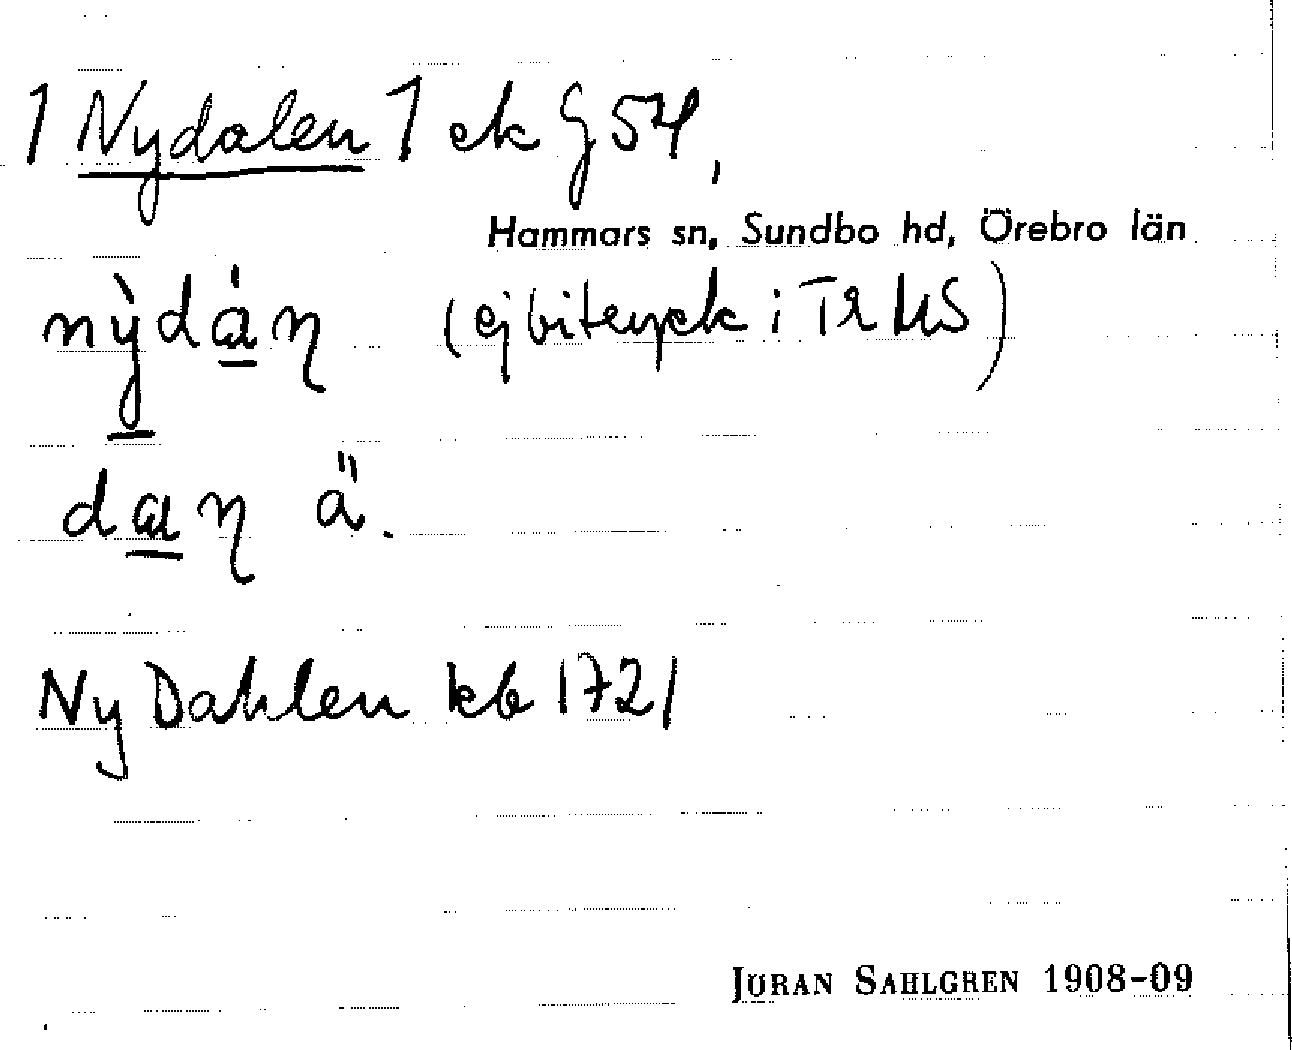 1 Nydalen 1 ek G 54,
Hammars sn, Sundbo hd, Örebro län
nỳdán (ej bitryck i Tr MS)
dan ä.
Ny Dahlen kb 1721
JÖRAN SAHLGREN 1908-09